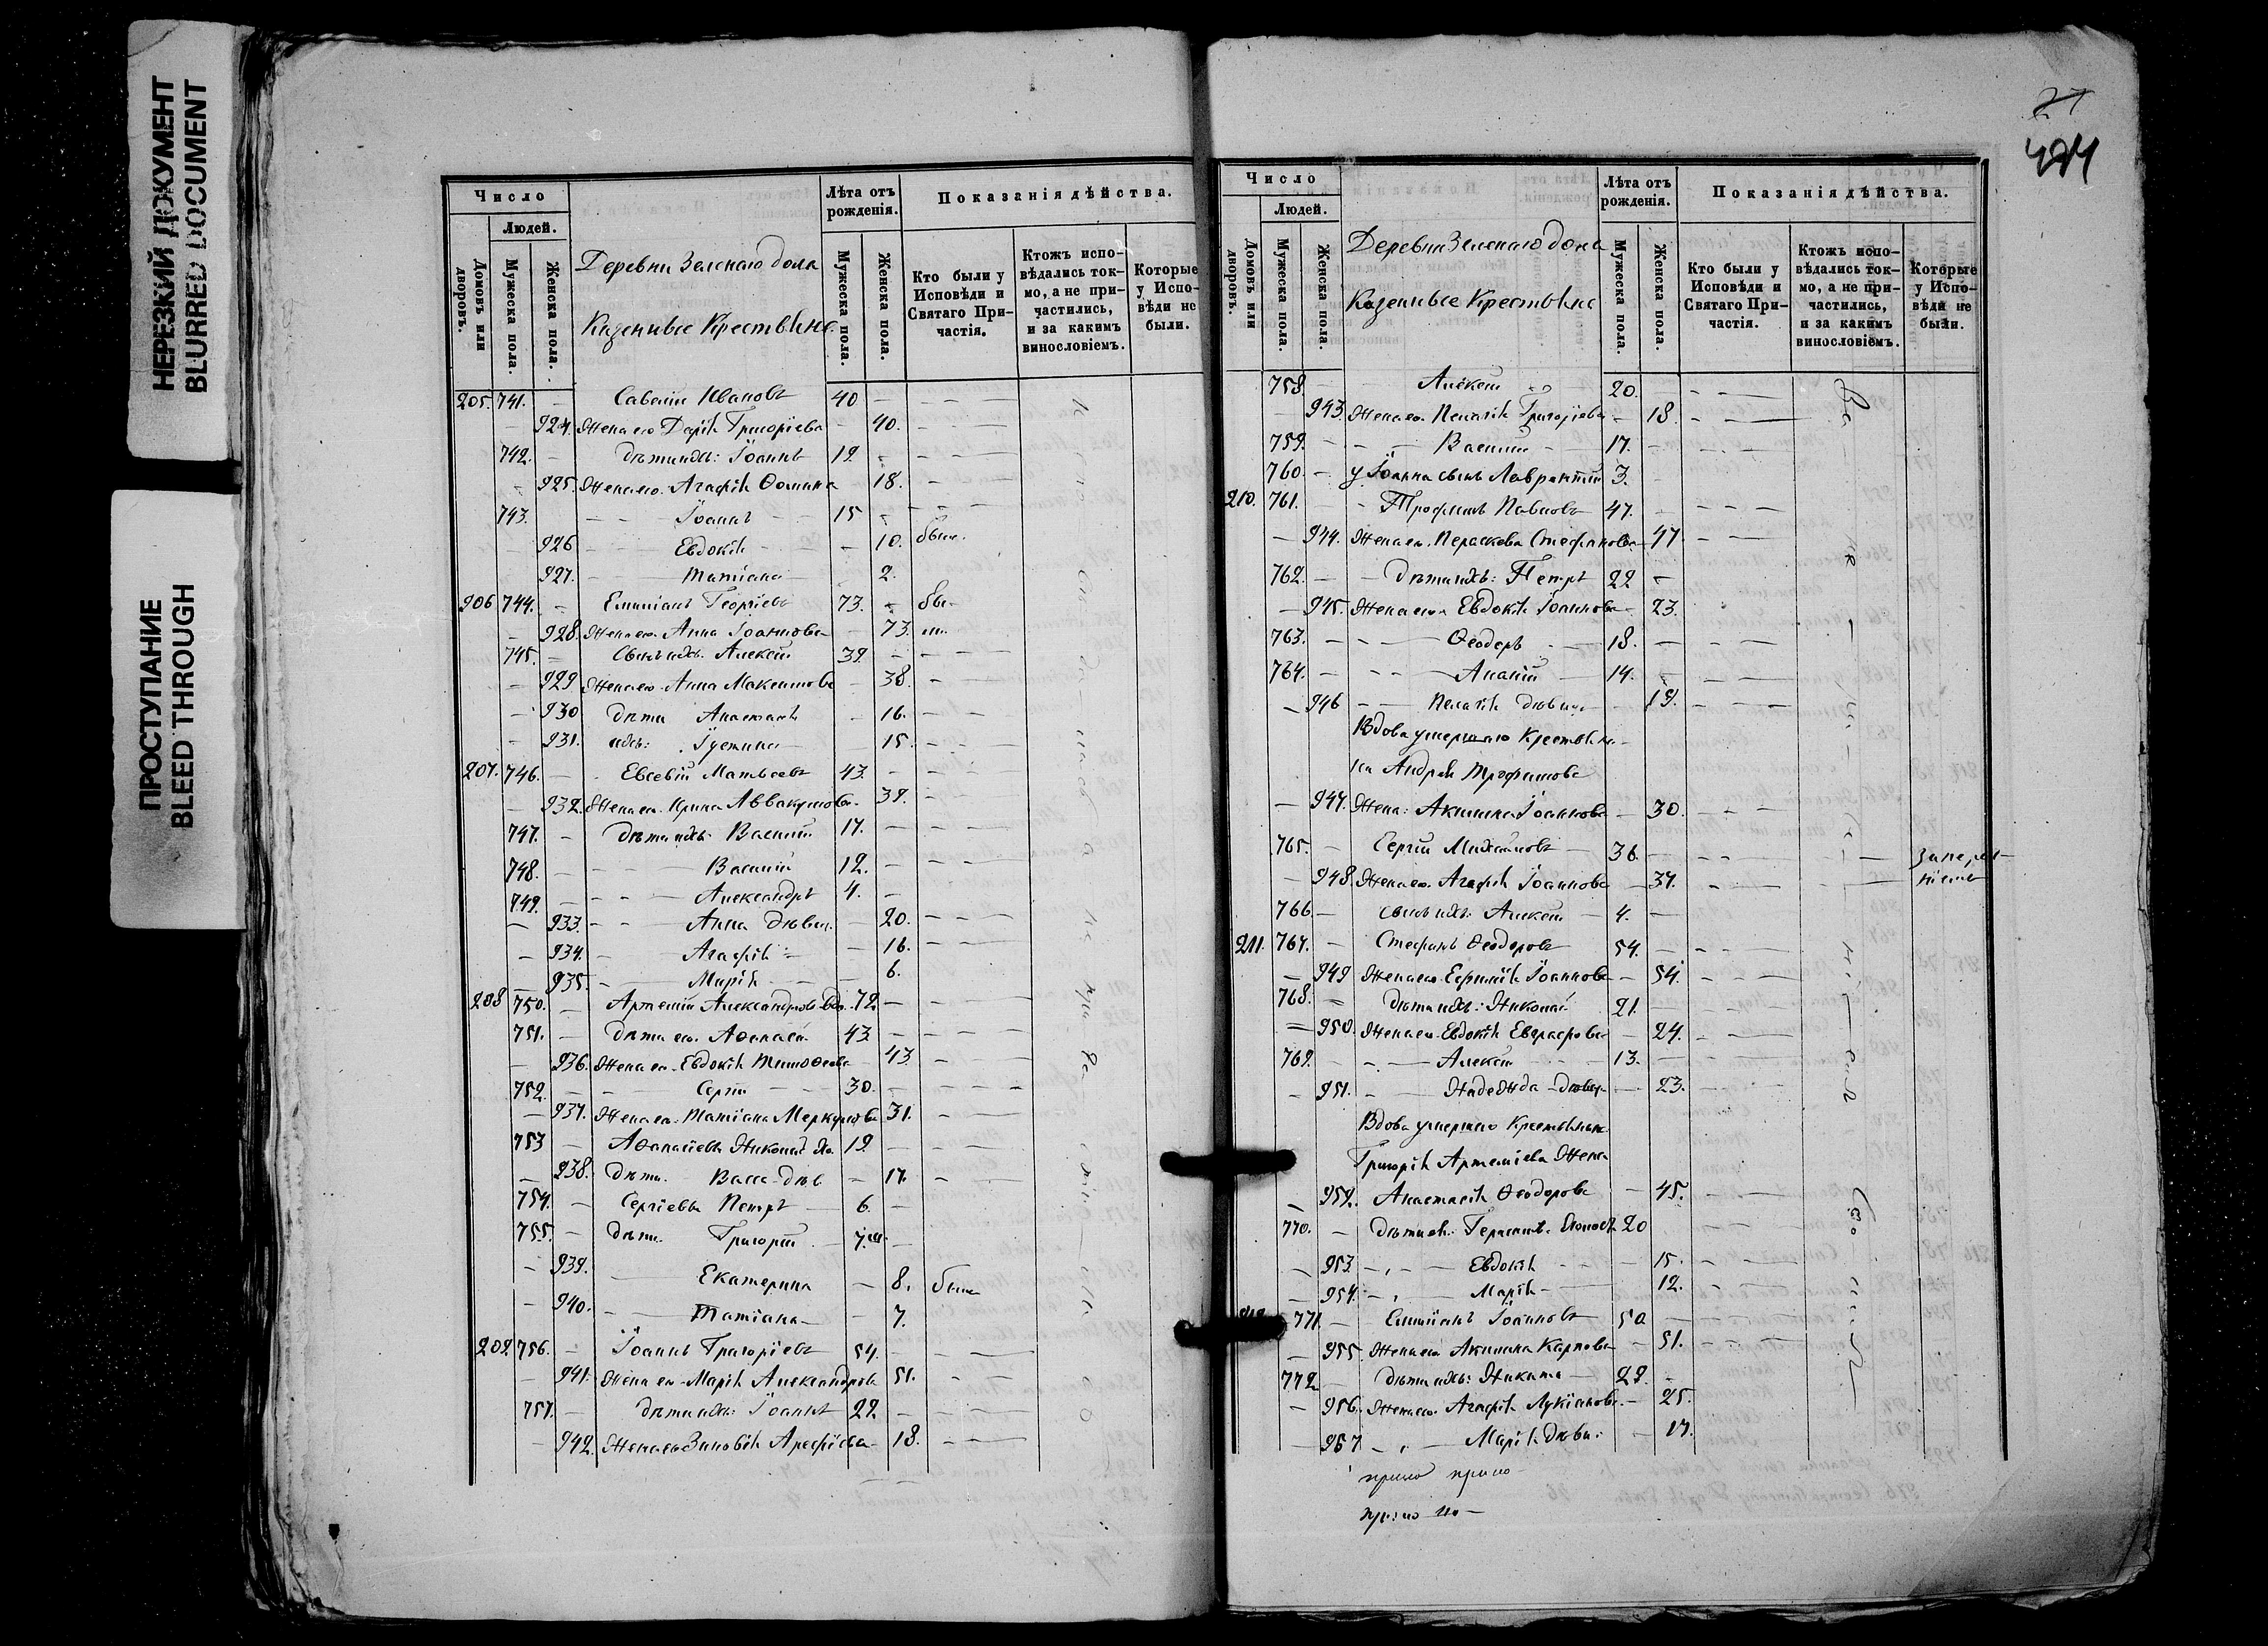 НЕРЕЗКИЙ ДОКУМЕНТ
BLURRED DOCUMENT
ПРОСТУПАНИЕ
BLEED THROUGH
Число
Людей.
Домовъ или дворовъ.
Мужеска пола.
Женска пола.
Деревни Зеленаго дола
Казенные Крестьяне
Лѣта отъ рожденія.
Мужеска пола.
Женска пола.
Показанія дѣйства.
Кто были у Исповѣди и Святаго Причастія.
Ктожъ исповѣдались токмо, а не причастились, и за какимъ винословіемъ.
Которые у Исповѣди не были.
205. 741. Саватій Ивановъ 40
924. Жена его Дарія Григоріева 40.
742. Дѣти ихъ: Іоаннъ 19.
925. Жена его Агафія Ѳомина 18.
743. Іоаннъ 15
926 Евдокія 10. были
927. Татіана 2.
206 744. Емиліанъ Георгіевъ 73. бы-
928. Жена его Анна Іоаннова 73. ли
745. Сынъ ихъ Алексѣй 39.
929 Жена его Анна Максимова 38.
930 дѣти Анастасія 16.
931. ихъ: Іустина 15.
207. 746. Евсевій Матвѣевъ 43.
932. Жена его Ирина Аввакумова 39.
747. Дѣти ихъ: Василій 17.
748. Василій 12.
749. Александръ 4.
933. Анна дѣвица 20.
934. Агафія 16.
935. Марія 6.
208 750. Артемій Александровъ вдо. 72
751. Дѣти его Аѳанасій 43
936. Жена его Евдокія Тимоѳеева 43
752. Сергій 30.
937. Жена его Татіана Меркулова 31.
753 Аѳанасіевы Николай хо. 19.
938. дѣти Васса дѣв. 17.
754. Сергіевы Петръ 6.
755. дѣти Григорій 7.м.
939. Екатерина 8. были
940. Татіана 7.
209. 756. Іоаннъ Григоріевъ 54.
941. Жена его Марія Александрова 51.
757. Дѣти ихъ: Іоаннъ 22.
942. Жена его Зиновія Арефіева 18.
494
Число
Людей.
Домовъ или дворовъ.
Мужеска пола.
Женска пола.
Деревни Зеленаго дола
Казенные Крестьяне
Лѣта отъ рожденія.
Мужеска пола.
Женска пола.
Показанія дѣйства.
Кто были у Исповѣди и Святаго Причастія.
Ктожъ исповѣдались токмо, а не причастились, и за какимъ винословіемъ.
Которые у Исповѣди не были.
758. Алексѣй 20.
943. Жена его Пелагія Григоріева 18.
759. Василій 17.
760. у Іоанна сынъ Лаврентій 3.
210. 761. Трофимъ Павловъ 47.
944. Жена его Параскева Стефанова 47
762. Дѣти ихъ: Петръ 22
945. Жена его Евдокія Іоаннова 23.
763. Ѳеодоръ 18.
764. Ананій 14.
946 Пелагія дѣвица 19.
Вдова умершаго Крестьяни-
на Андрея Трофимова
947. Жена: Акилина Іоаннова 30.
765. Сергій Михайловъ 36. запрещ-
948. Жена его Агафія Іоаннова 37. ніемъ
766. сынъ ихъ Алексѣй 4.
211. 767. Стефанъ Ѳеодоровъ 54.
949 Жена его Евфимія Іоаннова 54.
768. дѣти ихъ: Николай 21.
950. Жена его Евдокія Евграфова 24.
769. Алексѣй 13.
951. Надежда дѣвица 23.
Вдова умершаго Крестьянина
Григорія Артеміева Жена
952. Анастасія Ѳеодорова 45.
770. Дѣти ея: Герасимъ холостъ 20
953. Евдокія 15.
954. Марія 12.
771. Емиліанъ Іоанновъ 50
955. Жена его Акилина Карпова 51.
772. дѣти ихъ: Никита 29.
956. Жена его Агафія Лукіанова 25.
957 Марія дѣви: 17.